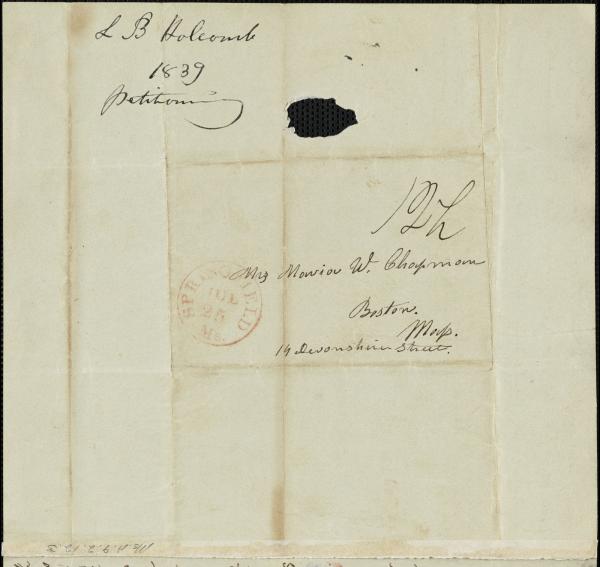 L B Holcomb
1839
Petitioning
12½
Mrs Maria W. Chapman
Boston.
Mass.
14 Devonshire Street.
SPRINGFIELD
JUL
25
Ms.
Ms.A.9.2.12.